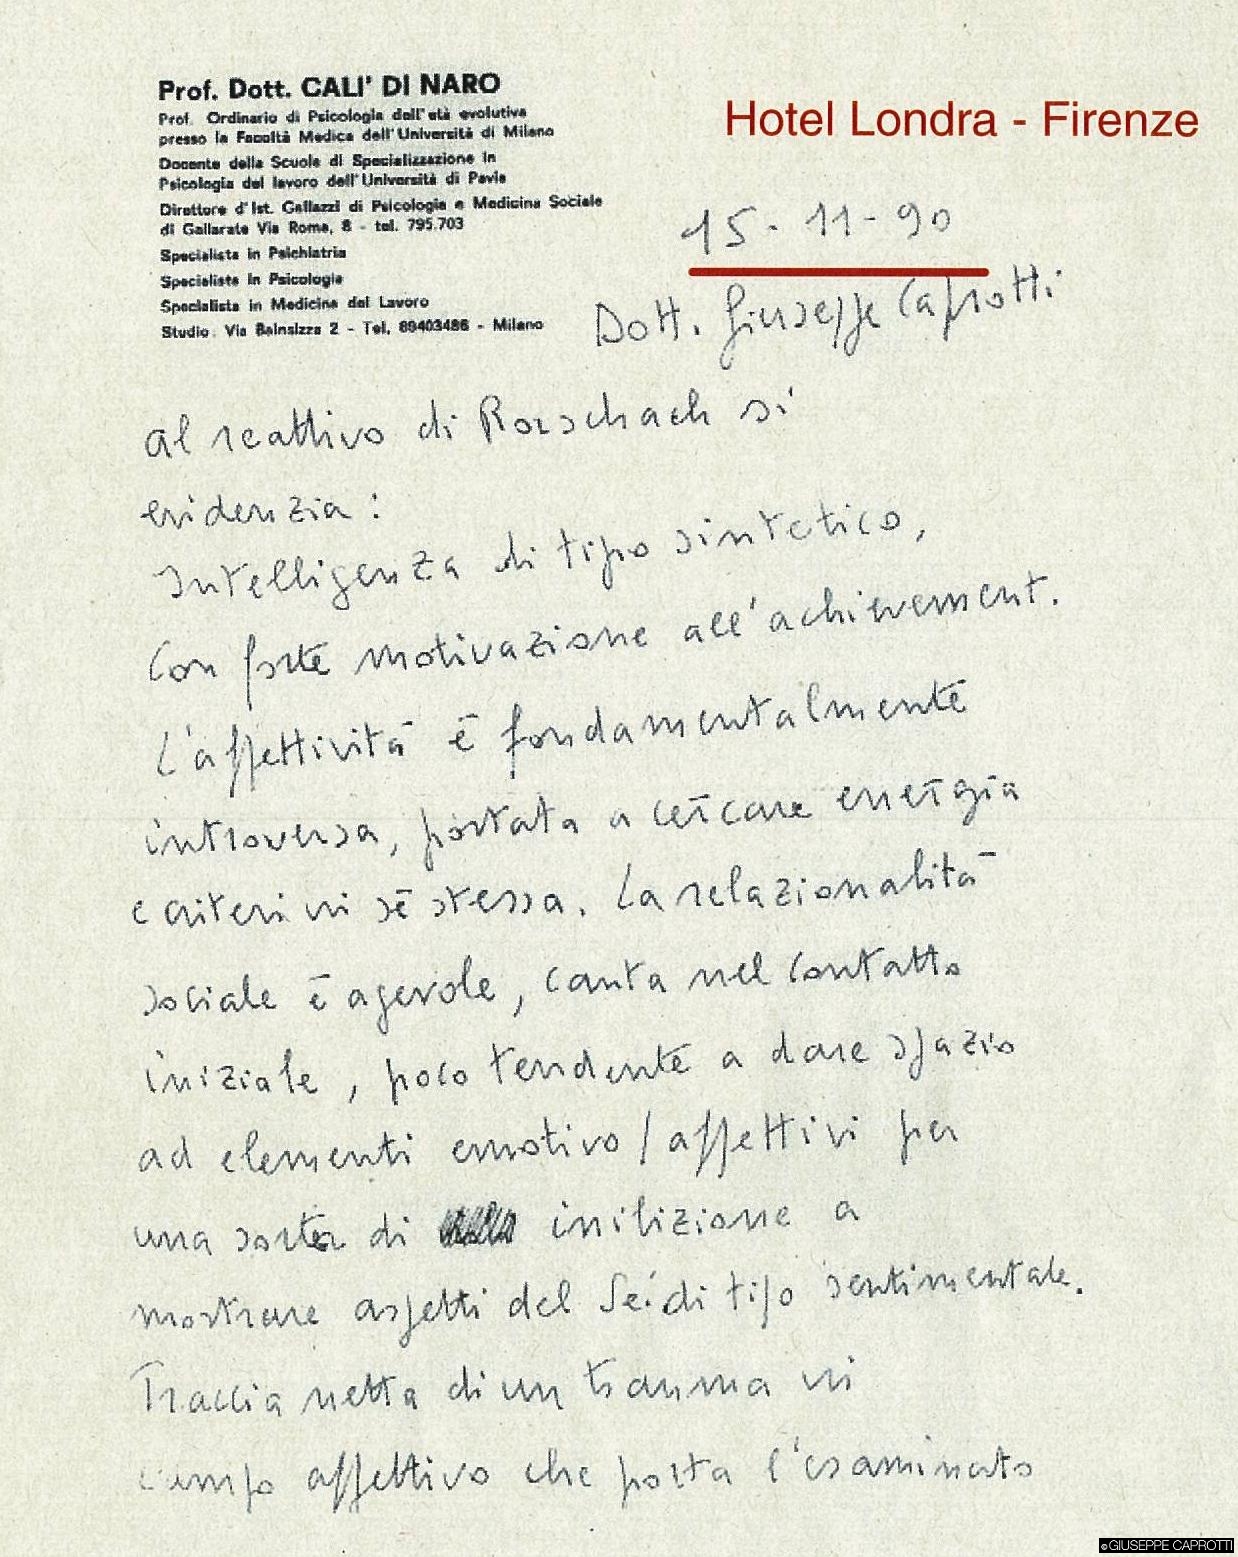 Prof. Dott. CALI' DI NARO
Prof. Ordinario di Psicologia dell'età evolutiva
presso la Facoltà Medica dell'Università di Milano
Docente della Scuola di Specializzazione in
Psicologia del lavoro dell'Università di Pavia
Direttore d'Ist. Gallazzi di Psicologia e Medicina Sociale
di Gallarate Via Roma, 8 - tel. 795.703
Specialista in Psichiatria
Specialista in Psicologia
Specialista in Medicina del Lavoro
Studio: Via Bainsizza 2 - Tel. 89403486 - Milano
Hotel Londra - Firenze
15-11-90
Dott. Giuseppe Caprotti
al reattivo di Rorschach si
evidenzia:
Intelligenza di tipo sintetico,
con forte motivazione all'achievement.
L'affettività è fondamentalmente
introversa, portata a cercare energia
e criteri in sé stessa. La relazionalità
sociale è agevole, cauta nel contatto
iniziale, poco tendente a dare spazio
ad elementi emotivo/affettivi per
una sorta di inibizione a
mostrare aspetti del Sé di tipo sentimentale.
Traccia netta di un trauma in
campo affettivo che porta l'esaminato
©GIUSEPPE CAPROTTI